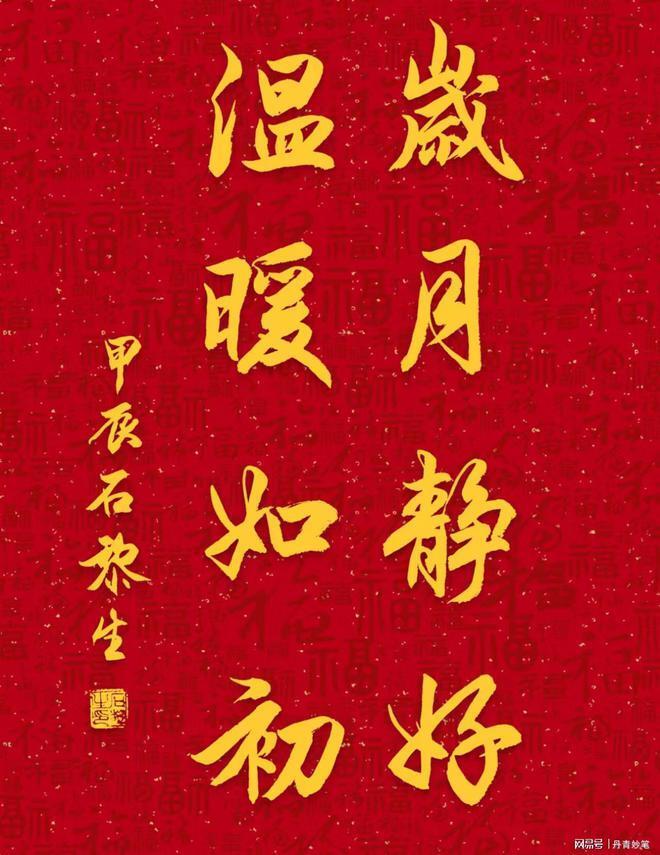 歲月靜好
温暖如初
甲辰石黎生
网易号 | 丹青妙笔